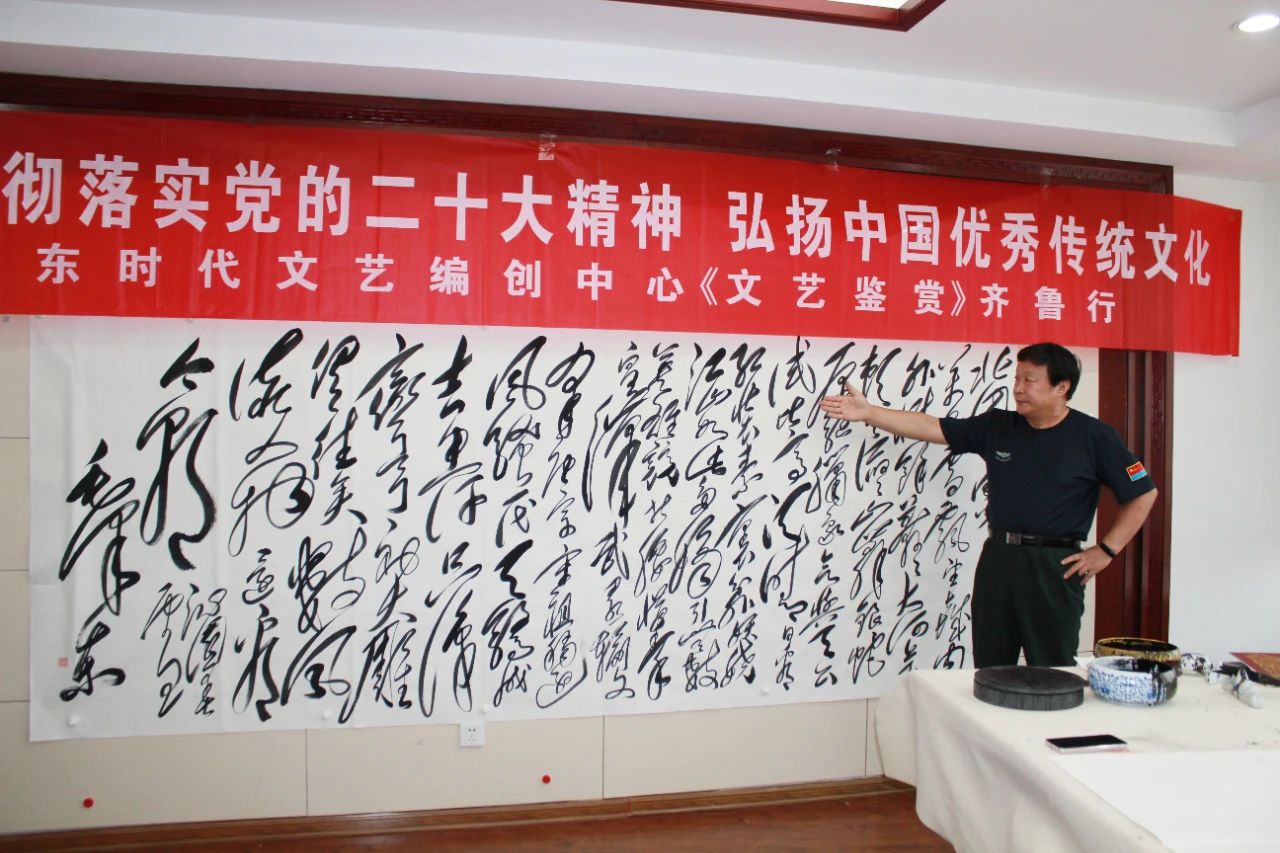 彻落实党的二十大精神 弘扬中国优秀传统文化
东时代文艺编创中心《文艺鉴赏》齐鲁行
外惟余莽莽大河上
原驰蜡象欲与天公
试比高须晴日看
红装素裹分外妖娆
江山如此多娇引无数
英雄竞折腰惜秦
皇汉武略输文
采唐宗宋祖稍逊
风骚一代天骄成
吉思汗只识
弯弓射大雕
俱往矣数风
流人物还看
今朝
毛泽东